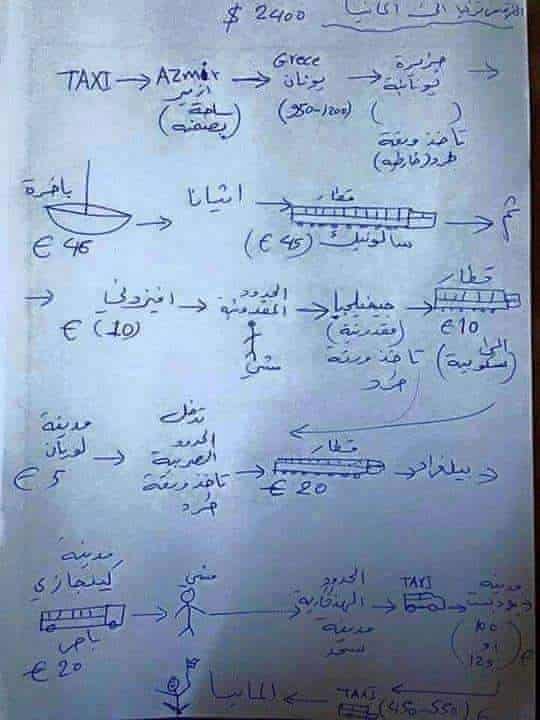 من تركيا الى المانيا $ 2400
TAXI → AZmir ازمير (ساحة بصمنه) → Grece يونان (950-1200) → جزيرة يونانية ( ) تأخذ ورقة طرد (خارطيه) →
باخرة € 45 → اثيانا → قطار سالونيك (€ 45) → ثم
→ افيزوني € (10) → الحدود المقدونية مشي → جيفيليجيا (مقدونية) تأخذ ورقة طرد → قطار €10 (الى سكوبية)
مدينة لويان € 5 → تدخل الحدود الصربية تاخذ ورقة طرد → قطار € 20 → بيلغراد
مدينة كينجازي باص € 20 → مشي → الحدود الهنغارية مدينة → TAXI → مدينة بودبست (100 او 125) €
TAXI (450-550) € → المانيا